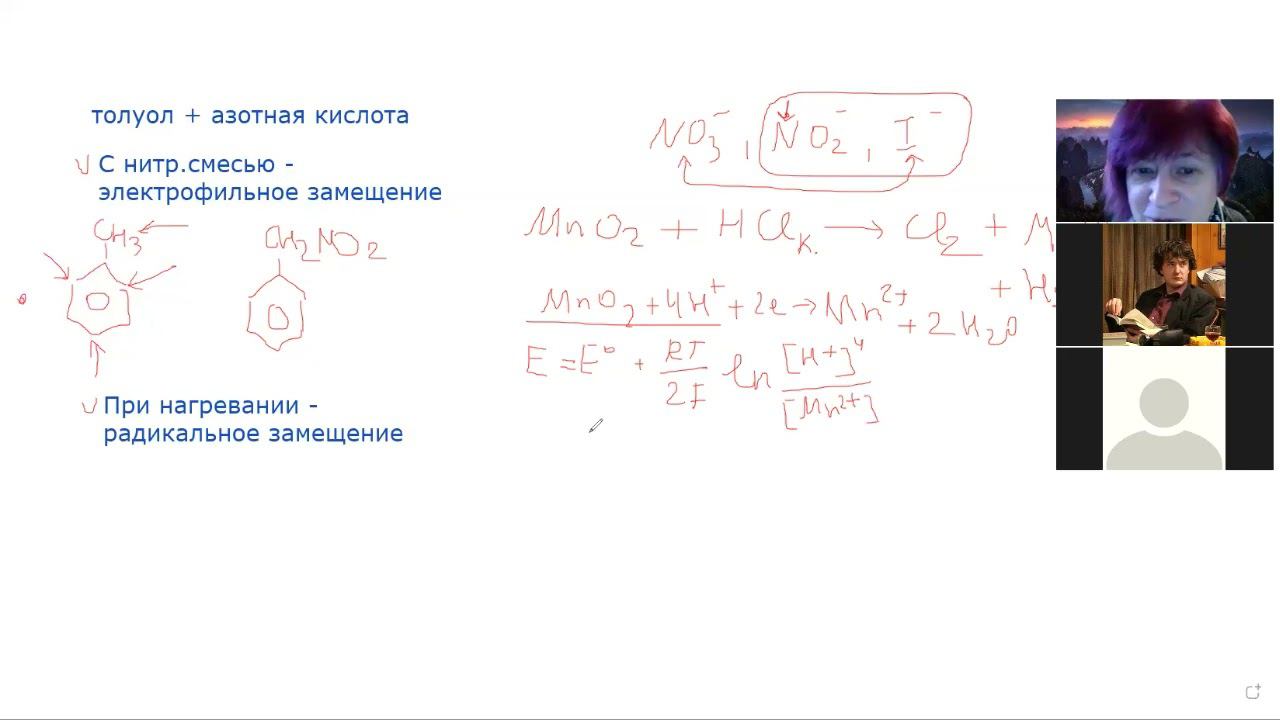 толуол + азотная кислота
С нитр.смесью -
электрофильное замещение
CH3
CH2NO2
При нагревании -
радикальное замещение
NO3⁻, NO2⁻, I⁻
MnO2 + HClк. → Cl2 + M
+ H2
MnO2 + 4H⁺ + 2e → Mn²⁺ + 2H2O
E = E° + RT/2F ln [H+]⁴/[Mn²⁺]